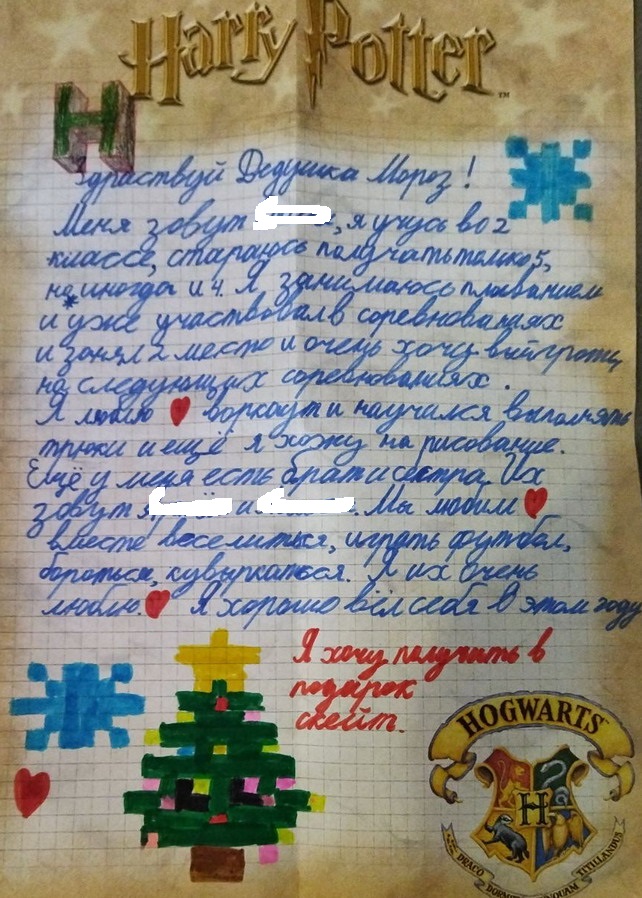 Harry Potter™
H
Здраствуй Дедушка Мороз!
Меня зовут , я учусь во 2
классе, стараюсь получать только 5,
но иногда и 4. Я занимаюсь плаванием
и уже участвовал в соревнованиях
и занял 2 место и очень хочу выйграть
на следующих соревнованиях.
Я люблю воркаут и научился выполнять
трюки и ещё я хожу на рисование.
Ещё у меня есть брат и сестра. Их
зовут и . Мы любим
вместе веселиться, играть футбол,
бороться, кувыркаться. Я их очень
люблю. Я хорошо вёл себя в этом году
Я хочу получить в
подарок
скейт.
HOGWARTS
H
DRACO DORMIENS NUNQUAM TITILLANDUS